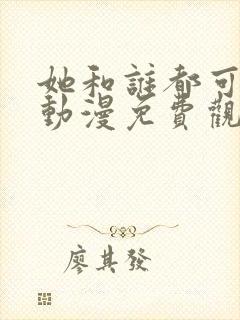 她和誰都可
動漫免費觀
廖其發